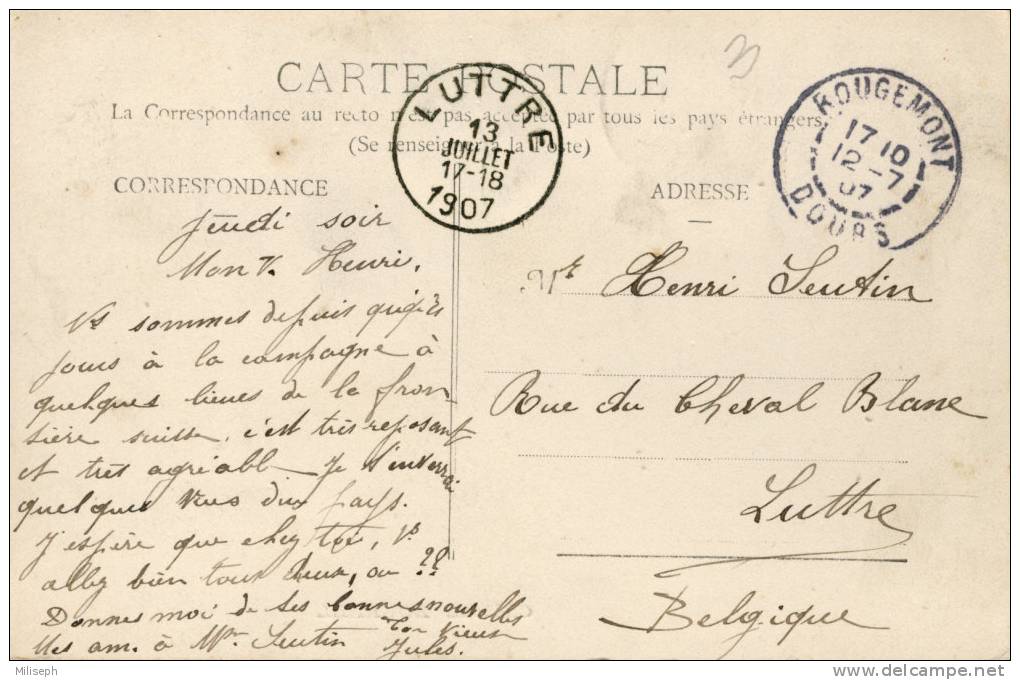 CARTE POSTALE
La Correspondance au recto n'est pas acceptée par tous les pays étrangers.
(Se renseigner à la Poste)
LUTTRE
13
JUILLET
17-18
1907
ROUGEMONT
17 10
12-7
07
DOUBS
CORRESPONDANCE
ADRESSE
Jeudi soir
Mon v. Henri,
Vs sommes depuis qq
jours à la campagne à
quelques lieues de la fron
tière suisse, c'est très reposant
et très agréabl Je t'enverrai
quelques vues du pays.
J'espère que chez toi, Vs
allez bien tous deux, ou ??
Donne moi de tes bonnes nouvelles
Mes am. à Me Seutin Ton vieux
Jules.
Mr Henri Seutin
Rue du Cheval Blanc
Luttre
Belgique
Miliseph
www.delcampe.net